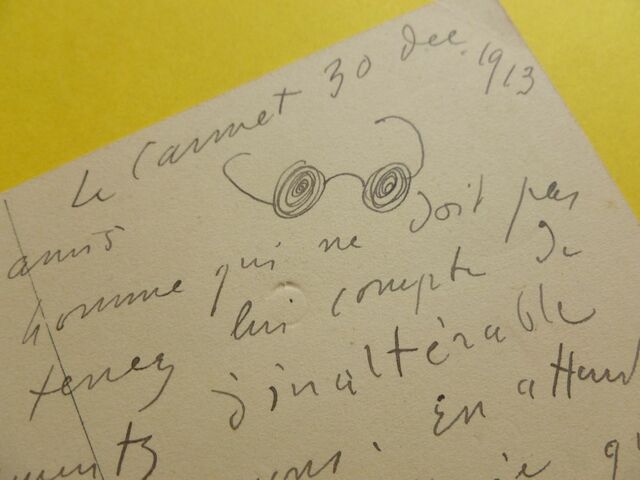 Le Cannet 30 dec. 1913
amis
homme qui ne doit pas
tenez lui compte de
d'inaltérable
ments
vous. En attend